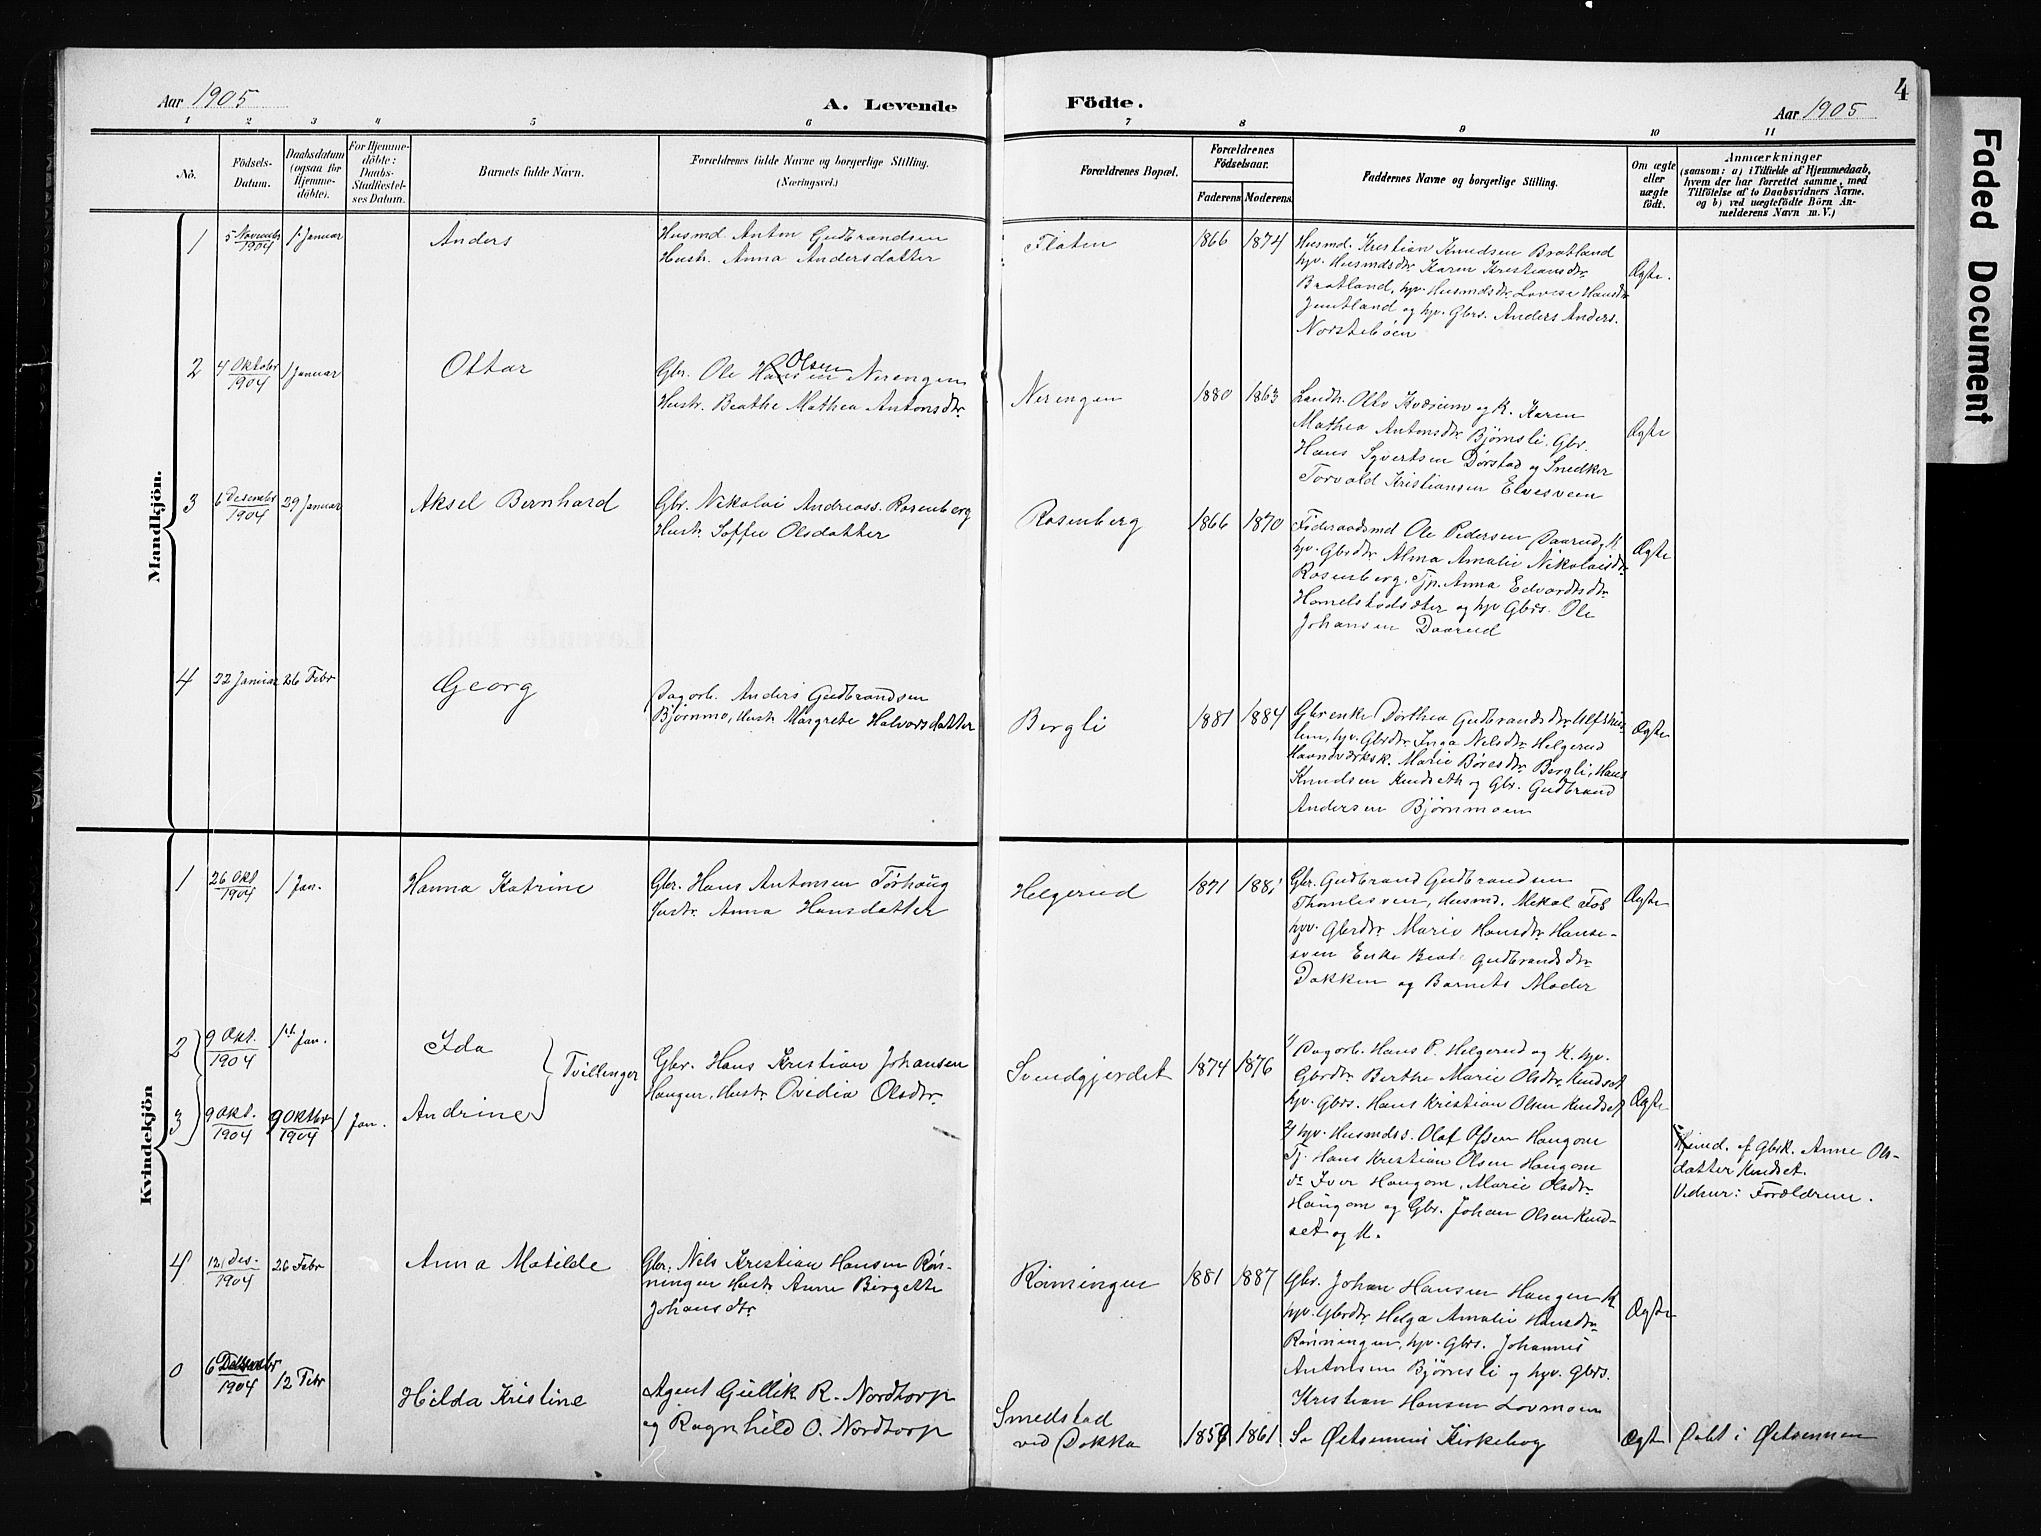 Aar 1905
A. Levende
Födte.
Aar 1905
4
Faded Document
1 2 3 4 5 6 7 8 9 10 11
No.
Födsels-Datum.
Daabsdatum (ogsaa for Hjemme-döbte).
For Hjemme-döbte: Daabs-Stadfæstel-ses Datum.
Barnets fulde Navn.
Forældrenes fulde Navne og borgerlige Stilling.
(Næringsvei.)
Forældrenes Bopæl.
Forældrenes Födselsaar.
Faderens Moderens
Faddernes Navne og borgerlige Stilling.
Om ægte eller uægte födt.
Anmærkninger
(saasom: a) i Tilfælde af Hjemmedaab,
hvem der har forrettet samme, med
Tilföielse af to Daabsvidners Navne.
og b) ved uægtefödte Börn An-
melderens Navn m. V.)
Mandkjön.
1 5 Novembr 1904 1. Januar Anders
Husmd. Anton Gudbrandsen
Hustr. Anna Andersdatter
Flaten 1866 1874
Husmd. Kristian Knudsen Bratland
hpv. Husmdsdtr. Karen Kristiansdtr.
Bratland, hpv. Husmdsdtr. Lovise Hansdtr.
Jemtland og hpv. Gbrs. Anders Anders.
Norstebøen
Ægte.
2 4 Oktobr 1904 1 Januar Ottar
Gbr. Ole Hansen Olsen Nerengen
Hustr. Beathe Mathea Antonsdtr.
Nerengen 1880 1863
Landh. Otto Kværum og K. Karen
Mathea Antonsdtr. Bjørnsli. Gbr.
Hans Syvertsen Dørstad og Snedker
Torvald Kristiansen Elvesveen
Ægte
3 6 Desembr 1904 29 Januar Aksel Bernhard
Gbr. Nikolai Andreass. Rosenberg
Hustr. Soffie Olsdatter
Rosenberg 1866 1870
Føderaadsmd Ole Pedersen Daarud, K
hpv. Gbrdtr. Alma Amalie Nikolaisdtr.
Rosenberg. Tjp. Anna Edvardsdtr.
og hpv Gbrs. Ole
Johansen Daarud
Ægte
4 22 Januar 26 Febr Georg
Dagarb. Anders Gudbrandsen
Bjørnmo, Hustr. Margrete Halvorsdatter
Bergli 1881 1884
Gbrenke Dorthea Gudbrandsdtr.
hpv. Gbrdtr. Inga Nelsdtr. Helgerud
Haandværksk. Marie Børesdtr. Bergli, Hans
Knudsen Kindseth og Gbr. Gudbrand
Andersen Bjørnmoen
Ægte
Kvindekjön
1 26 Okt 1904 1 Jan. Hanna Katrine
Gbr. Hans Antonsen Tørhaug
Hustr. Anna Hansdatter
Helgerud 1871 1881
Gbr. Gudbrand Gudbrandsen
Thomlesveen, Husmd. Mekal Fos
hpv. Gbrdtr. Marie Hansdtr. Hanse-
sveen Enke Beate Gudbrandsdtr.
Dokken og Barnets Moder
Ægte
2 9 Okt. 1904 1ste Jan. Ida
3 9 Okt. 1904 9 Oktbr 1904 1 Jan. Andrine
Tvillinger
Gbr. Hans Kristian Johansen
Haugen, Hustr. Ovidia Olsdtr.
Svendgjerdet 1874 1876
1/ Dagarb. Hans P. Helgerud og K. hpv.
Gbrdtr. Berthe Marie Olsdtr. Kindset
hpv. Gbrs. Hans Kristian Olsen Kindset
2/ hpv. Husmdss. Olaf Olsen Haugom
Tj. Hans Kristian Olsen Haugom
do Iver Haugom, Marie Olsdtr.
Haugom og Gbr. Johan Olsen Kind-
set og K.
Ægte
Hjemd. af Gbrk. Anne Ols-
datter Kindset.
Vidner: Forældrene.
4 12 Des. 1904 26 Febr Anna Matilde
Gbr. Nels Kristian Hansen Røn-
ningen Hustr. Anne Birgette
Johansdtr.
Rønningen 1881 1887
Gbr. Johan Hansen Haugen K
hpv. Gbrdtr. Helga Amalie Hansdtr.
Rønningen, hpv. Gbrs. Johannes
Antonsen Bjørnsli og hpv. Gbrs.
Kristian Hansen Lovmoen
Ægte
0 6 Desembr 1904 12 Febr Hilda Kristine
Agent Gullik R. Nordtorp
og Ragnhild O. Nordtorp
Smedstad
ved Dokka
1859 1861
Se Østsinnis Kirkebog
Ægte Døbt i Østsinnen